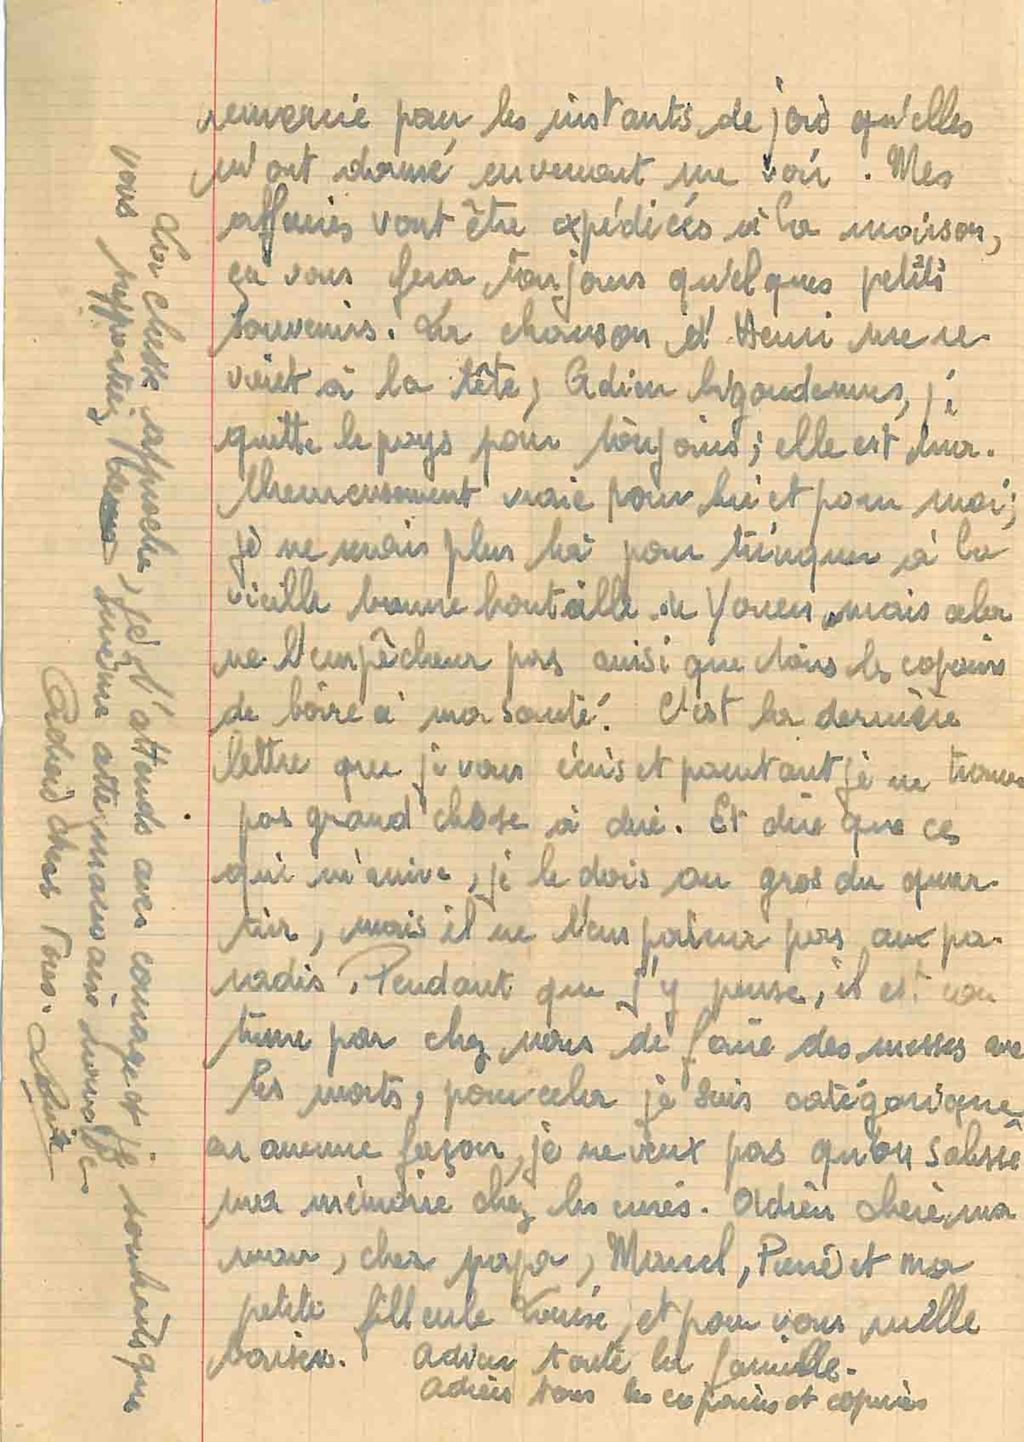 remercie pour les instants de joie qu'elles
m'ont donné en venant me voir. Mes
affaires vont être expédiées à la maison,
ça vous fera toujours quelques petits
souvenirs. La chanson d'Henri me re-
vient à la tête, Adieu bigoudennes, je
quitte le pays pour toujours; elle est mal-
heureusement vraie pour lui et pour moi;
je ne serais plus là pour trinquer à la
vieille bonne bouteille de Youen, mais cela
ne l'empêchera pas ainsi que tous les copains
de boire à ma santé. C'est la dernière
lettre que je vous écris et pourtant je ne trouve
pas grand chose à dire. Et dire que ce
qui m'arrive, je le dois au gros du quar-
tier, mais il ne l'emportera pas aux pa-
radis. Pendant que j'y pense, il est cou
tume par chez nous de faire des messes avec
les morts, pour cela je suis catégorique
en aucune façon, je ne veux pas qu'on salisse
ma mémoire chez les curés. Adieu chère ma
man, cher papa, Marcel, Pierre et ma
petite filleule Louise, et pour vous mille
baisers. Adieu toute la famille.
Adieu tous les copains et copines
La chose approche, je l'attends avec courage et je souhaite que
vous supportiez même cette mauvaise nouvelle
Adieu chers tous.